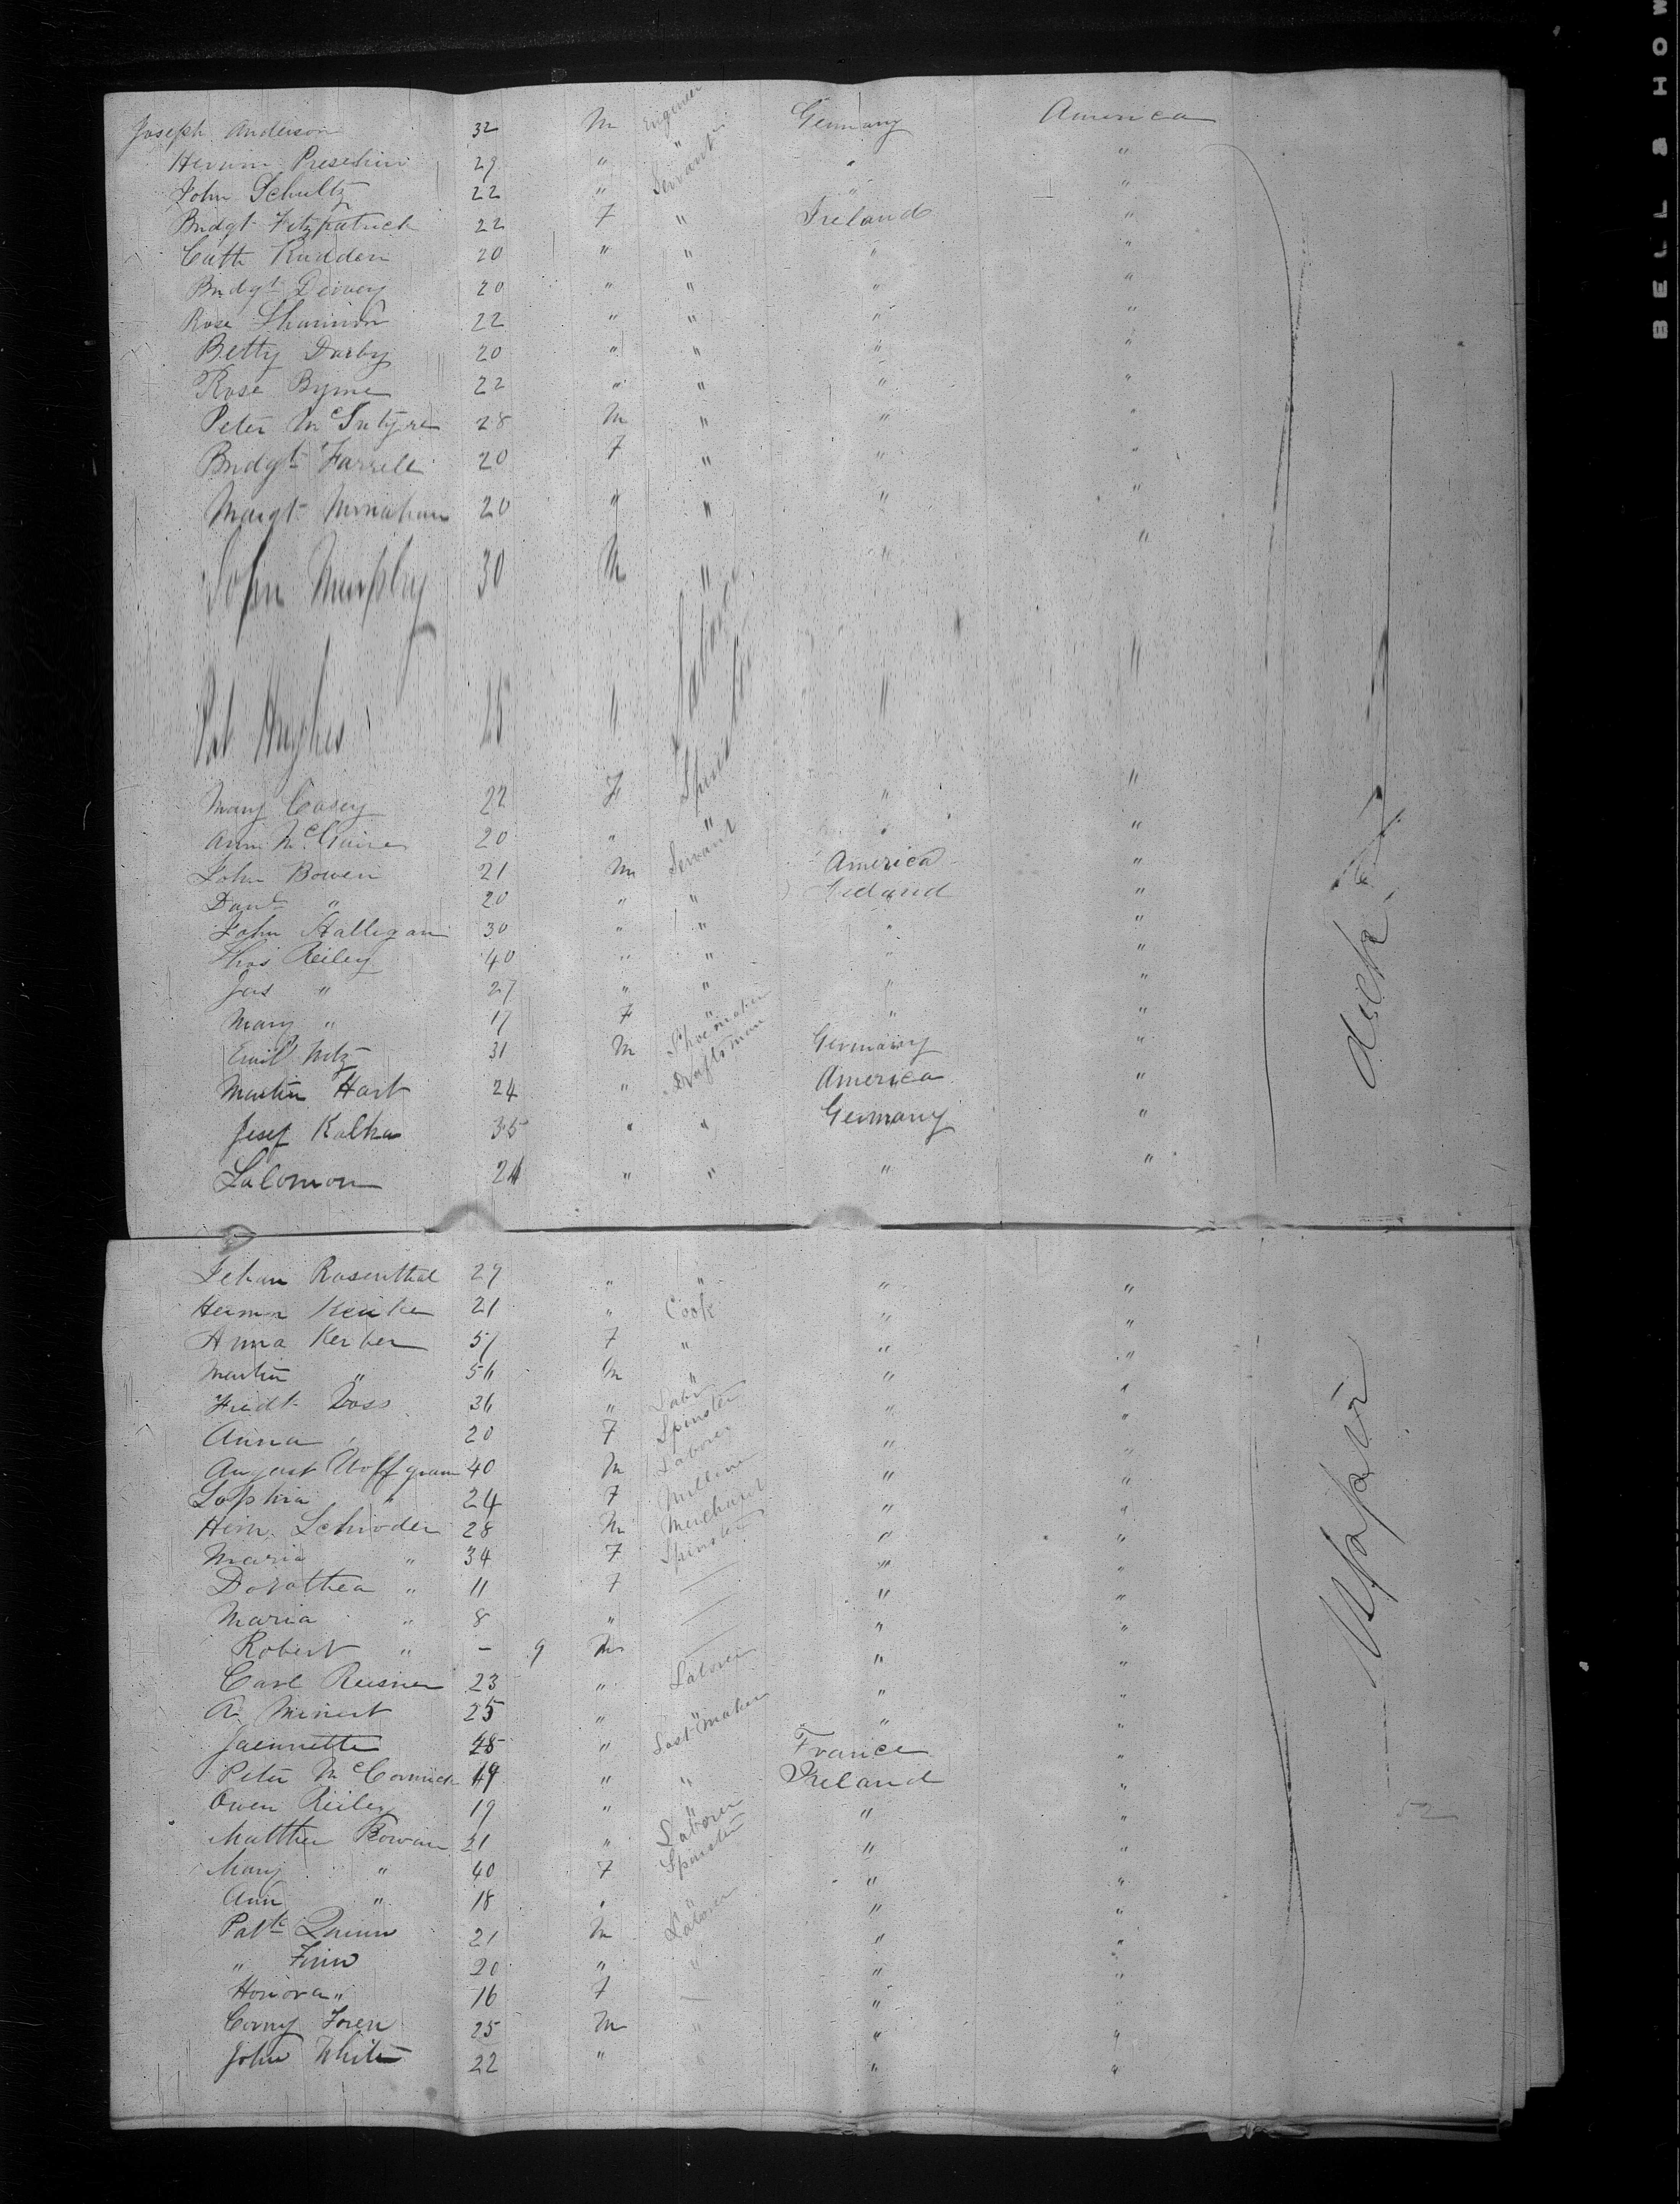 Joseph Anderson 32 M Engineer Germany America
Herm 29 " " " "
John Schultz 22 " Servant " "
Bridgt Fitzpatrick 22 F " Ireland "
Cath Rudden 20 " " " "
Bridgt 20 " " " "
Rose Shannon 22 " " " "
Betty Darby 20 " " " "
Rose Byrne 22 " " " "
Peter McIntyre 28 M " " "
Bridgt Farrell 20 F " " "
Margt Monahan 20 " " " "
John Murphy 30 M " " "
Pat Hughes 25 " Laborer " "
Mary Casey 22 F Spinster " "
Ann McGuire 20 " " " "
John Bowen 21 M Servant America "
Danl " 20 " " Ireland "
John Halligan 30 " " " "
Thos Reiley 40 " " " "
Jas " 27 " " " "
Mary " 17 F " " "
Emil 31 M Shoemaker Germany "
Martin Hart 24 " Draftsman America "
Josef Kalka 35 " " Germany "
Salomon 24 " " " "
Rosenthal 29 " " " "
Herman 21 " Cook " "
Anna Kerber 57 F " " "
Martin " 56 M " " "
Friedk Voss 36 " Labr " "
Anna " 20 F Spinster " "
August Wolffgram 40 M Laborer " "
Sophia " 24 F Milliner " "
Hein. Schroder 28 M Merchant " "
Maria " 34 F Spinster " "
Dorothea " 11 F — " "
Maria " 8 " — " "
Robert " - 9 M — " "
Carl Reisner 23 " Laborer " "
A. Minert 25 " " " "
Jaennette 48 " Last maker France "
Peter McCormick 19 " " Ireland "
Owen Reiley 19 " " " "
Matthew Rowan 21 " Laborer " "
Mary " 40 F Spinster " "
Ann " 18 " " " "
Patk Quinn 21 M Laborer " "
" Finn 20 " " " "
Honora " 16 F — " "
Corny 25 M " " "
John White 22 " " " "
52